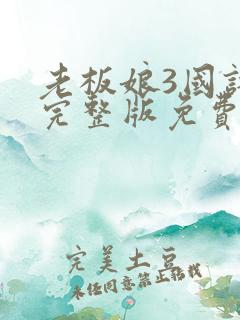 老板娘3国语
完整版免费
完美土豆
未经同意禁止转载